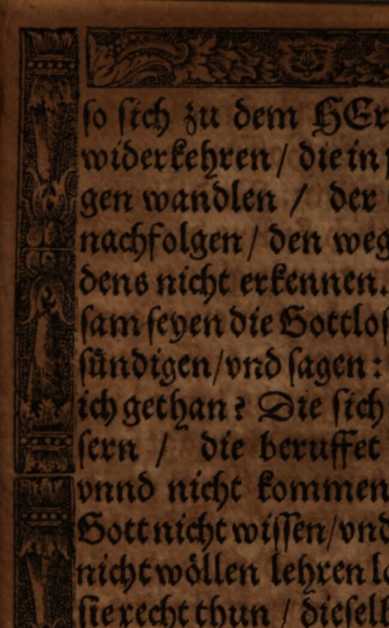 so sich zu dem HEr
widerkehren / die in
gen wandlen / der
nachfolgen / den weg
dens nicht erkennen.
sam seyen die Gottlos
sündigen / vnd sagen:
ich gethan? Die sich
sern / die beruffet
vnnd nicht kommen
Gott nicht wissen / vnd
nicht wöllen lehren
sie recht thun / diesell